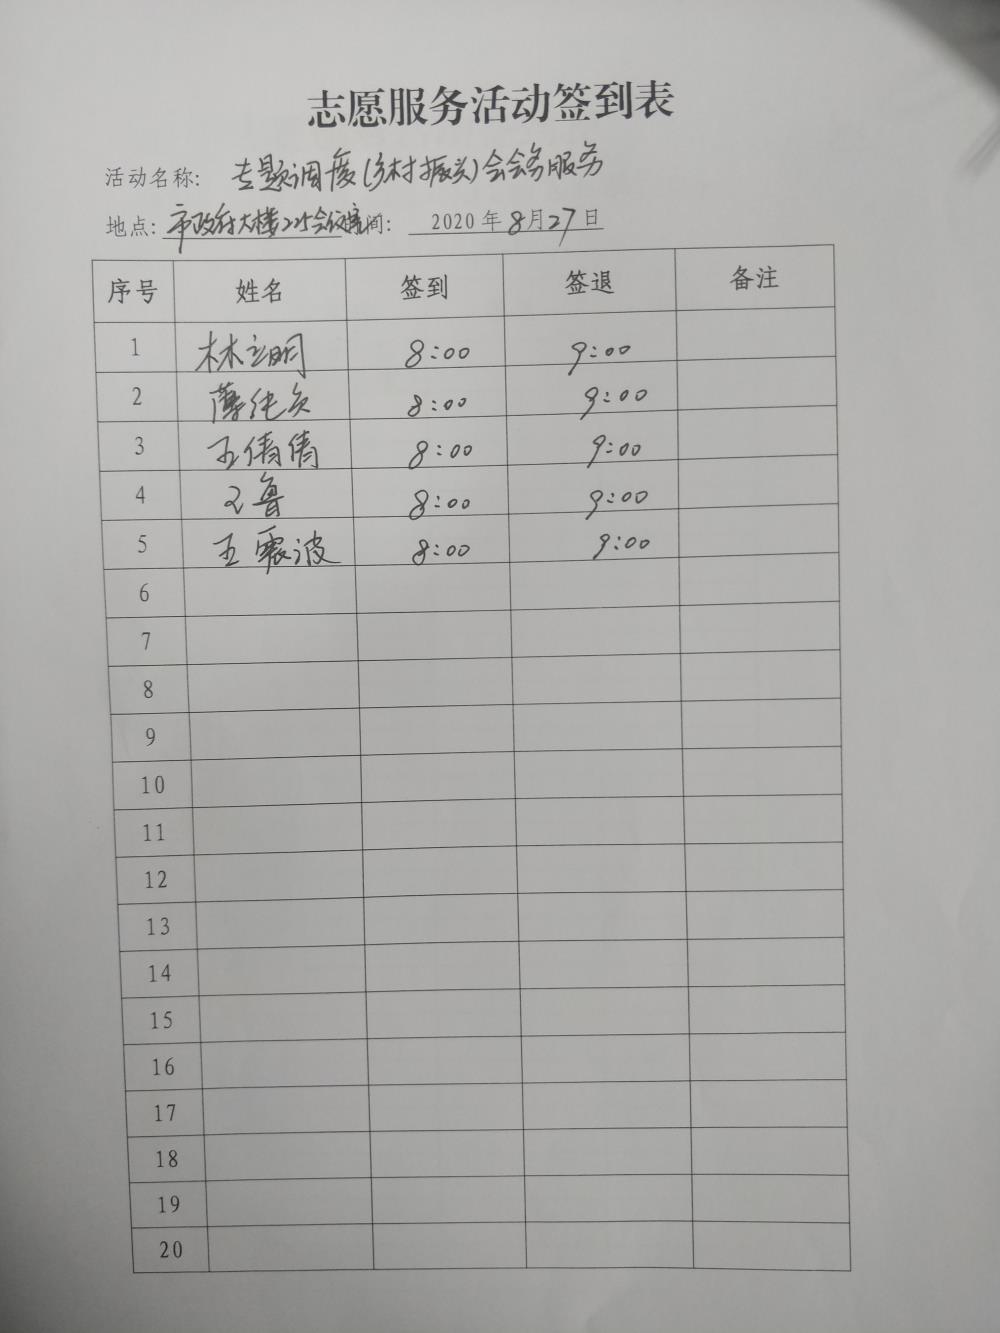 志愿服务活动签到表
活动名称: 专题调度(乡村振兴)会会务服务
地点: 市政府大楼225会议室 时间: 2020年8月27日
序号 姓名 签到 签退 备注
1 林立明 8:00 9:00
2 薄纯负 8:00 9:00
3 王倩倩 8:00 9:00
4 王鲁 8:00 9:00
5 王震波 8:00 9:00
6
7
8
9
10
11
12
13
14
15
16
17
18
19
20